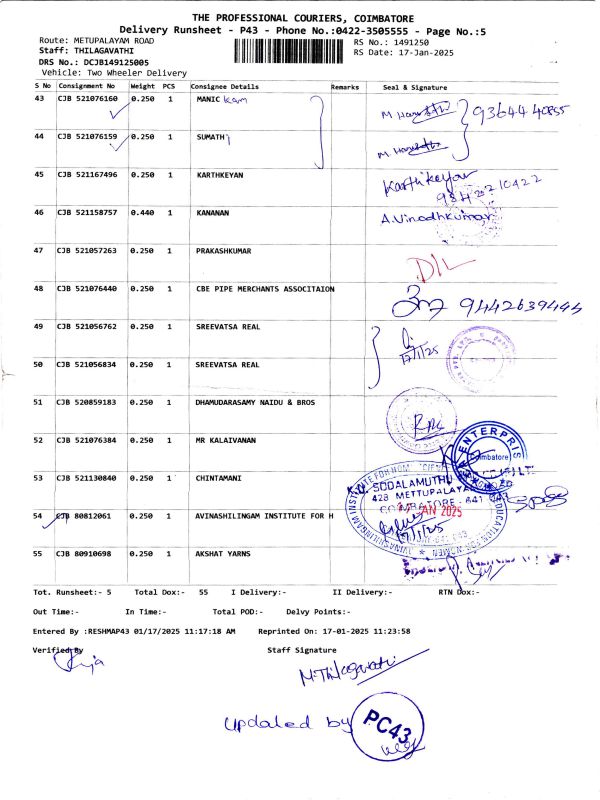 THE PROFESSIONAL COURIERS, COIMBATORE
Delivery Runsheet - P43 - Phone No.:0422-3505555 - Page No.:5
Route: METUPALAYAM ROAD
RS No.: 1491250
Staff: THILAGAVATHI
RS Date: 17-Jan-2025
DRS No.: DCJB149125005
Vehicle: Two Wheeler Delivery
S No Consignment No Weight PCS Consignee Details Remarks Seal & Signature
43 CJB 521076160 0.250 1 MANIC kam 9364440855
44 CJB 521076159 0.250 1 SUMATHi
45 CJB 521167496 0.250 1 KARTHKEYAN Karthikeyan
9842210422
46 CJB 521158757 0.440 1 KANANAN A.Vinodhkumar
47 CJB 521057263 0.250 1 PRAKASHKUMAR D/L
48 CJB 521076440 0.250 1 CBE PIPE MERCHANTS ASSOCITAION 9442639444
49 CJB 521056762 0.250 1 SREEVATSA REAL
17/1/25
50 CJB 521056834 0.250 1 SREEVATSA REAL
51 CJB 520859183 0.250 1 DHAMUDARASAMY NAIDU & BROS
52 CJB 521076384 0.250 1 MR KALAIVANAN
ENTERPRIS
Coimbatore
53 CJB 521130840 0.250 1 CHINTAMANI
SODALAMUTHU
428 METTUPALAYA
COIMBATORE - 641
54 CJB 80812061 0.250 1 AVINASHILINGAM INSTITUTE FOR H
JAN 2025
17/1/25
55 CJB 80910698 0.250 1 AKSHAT YARNS
Tot. Runsheet:- 5 Total Dox:- 55 I Delivery:- II Delivery:- RTN Dox:-
Out Time:- In Time:- Total POD:- Delvy Points:-
Entered By :RESHMAP43 01/17/2025 11:17:18 AM Reprinted On: 17-01-2025 11:23:58
Verified By Staff Signature
M.Thilagavathi
Updated by PC43